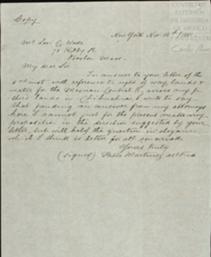 Copy
New York Nov. 16th 188
Mr Levi C. Wade
Kilby St.
Boston Mass.
My dear Sir
In answer to your letter of the
inst. with reference to right of way, lands &
water for the Mexican Central R. across my
lands in Chihuahua I wish to say
that pending an answer from my attorneys
here I cannot just for the present make any
proposition in the direction suggested by your
letter, but will hold the question in abeyance
which I think is better for all concerned.
Yours truly
(signed) Pablo Martinez del Rio